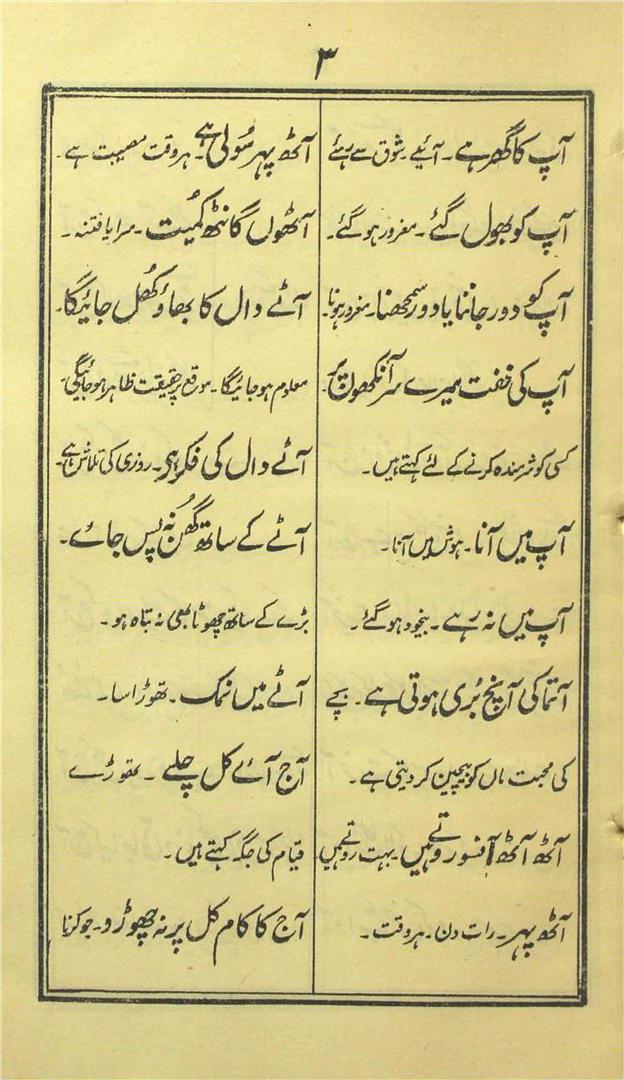 ۳
آپ کا گھر ہے۔ آئیے۔ شوق سے رہئے
آپ کو بھول گئے۔ مغرور ہو گئے۔
آپ کو دور جاننا یا دور سمجھنا۔ مغرور ہونا۔
آپ کی خفت میرے سر آنکھوں پر۔
کسی کو شرمندہ کرنے کے لئے کہتے ہیں۔
آپ میں آنا۔ ہوش میں آنا۔
آپ میں نہ رہے۔ بیخود ہو گئے۔
آتما کی آنچ بُری ہوتی ہے۔ بچے
کی محبت ماں کو بیچین کر دیتی ہے۔
آٹھ آٹھ آنسو روتے ہیں۔ بہت روتے ہیں
آٹھ پہر۔ رات دن۔ ہر وقت۔
آٹھ پہر سُولی ہے۔ ہر وقت مصیبت ہے۔
آٹھوں گانٹھ کُمیت۔ سراپا فتنہ۔
آٹے دال کا بھاؤ کھُل جائیگا۔
معلوم ہو جائیگا۔ موقع پر حقیقت ظاہر ہو جائیگی۔
آٹے دال کی فکر ہی۔ روزی کی تلاش ہے۔
آٹے کے ساتھ گھُن نہ پس جائے۔
بڑے کے ساتھ چھوٹا بھی نہ تباہ ہو۔
آٹے میں نمک۔ تھوڑا سا۔
آج آئے کل چلے۔ تھوڑے
قیام کی جگہ کہتے ہیں۔
آج کا کام کل پر نہ چھوڑو۔ جو کرنا